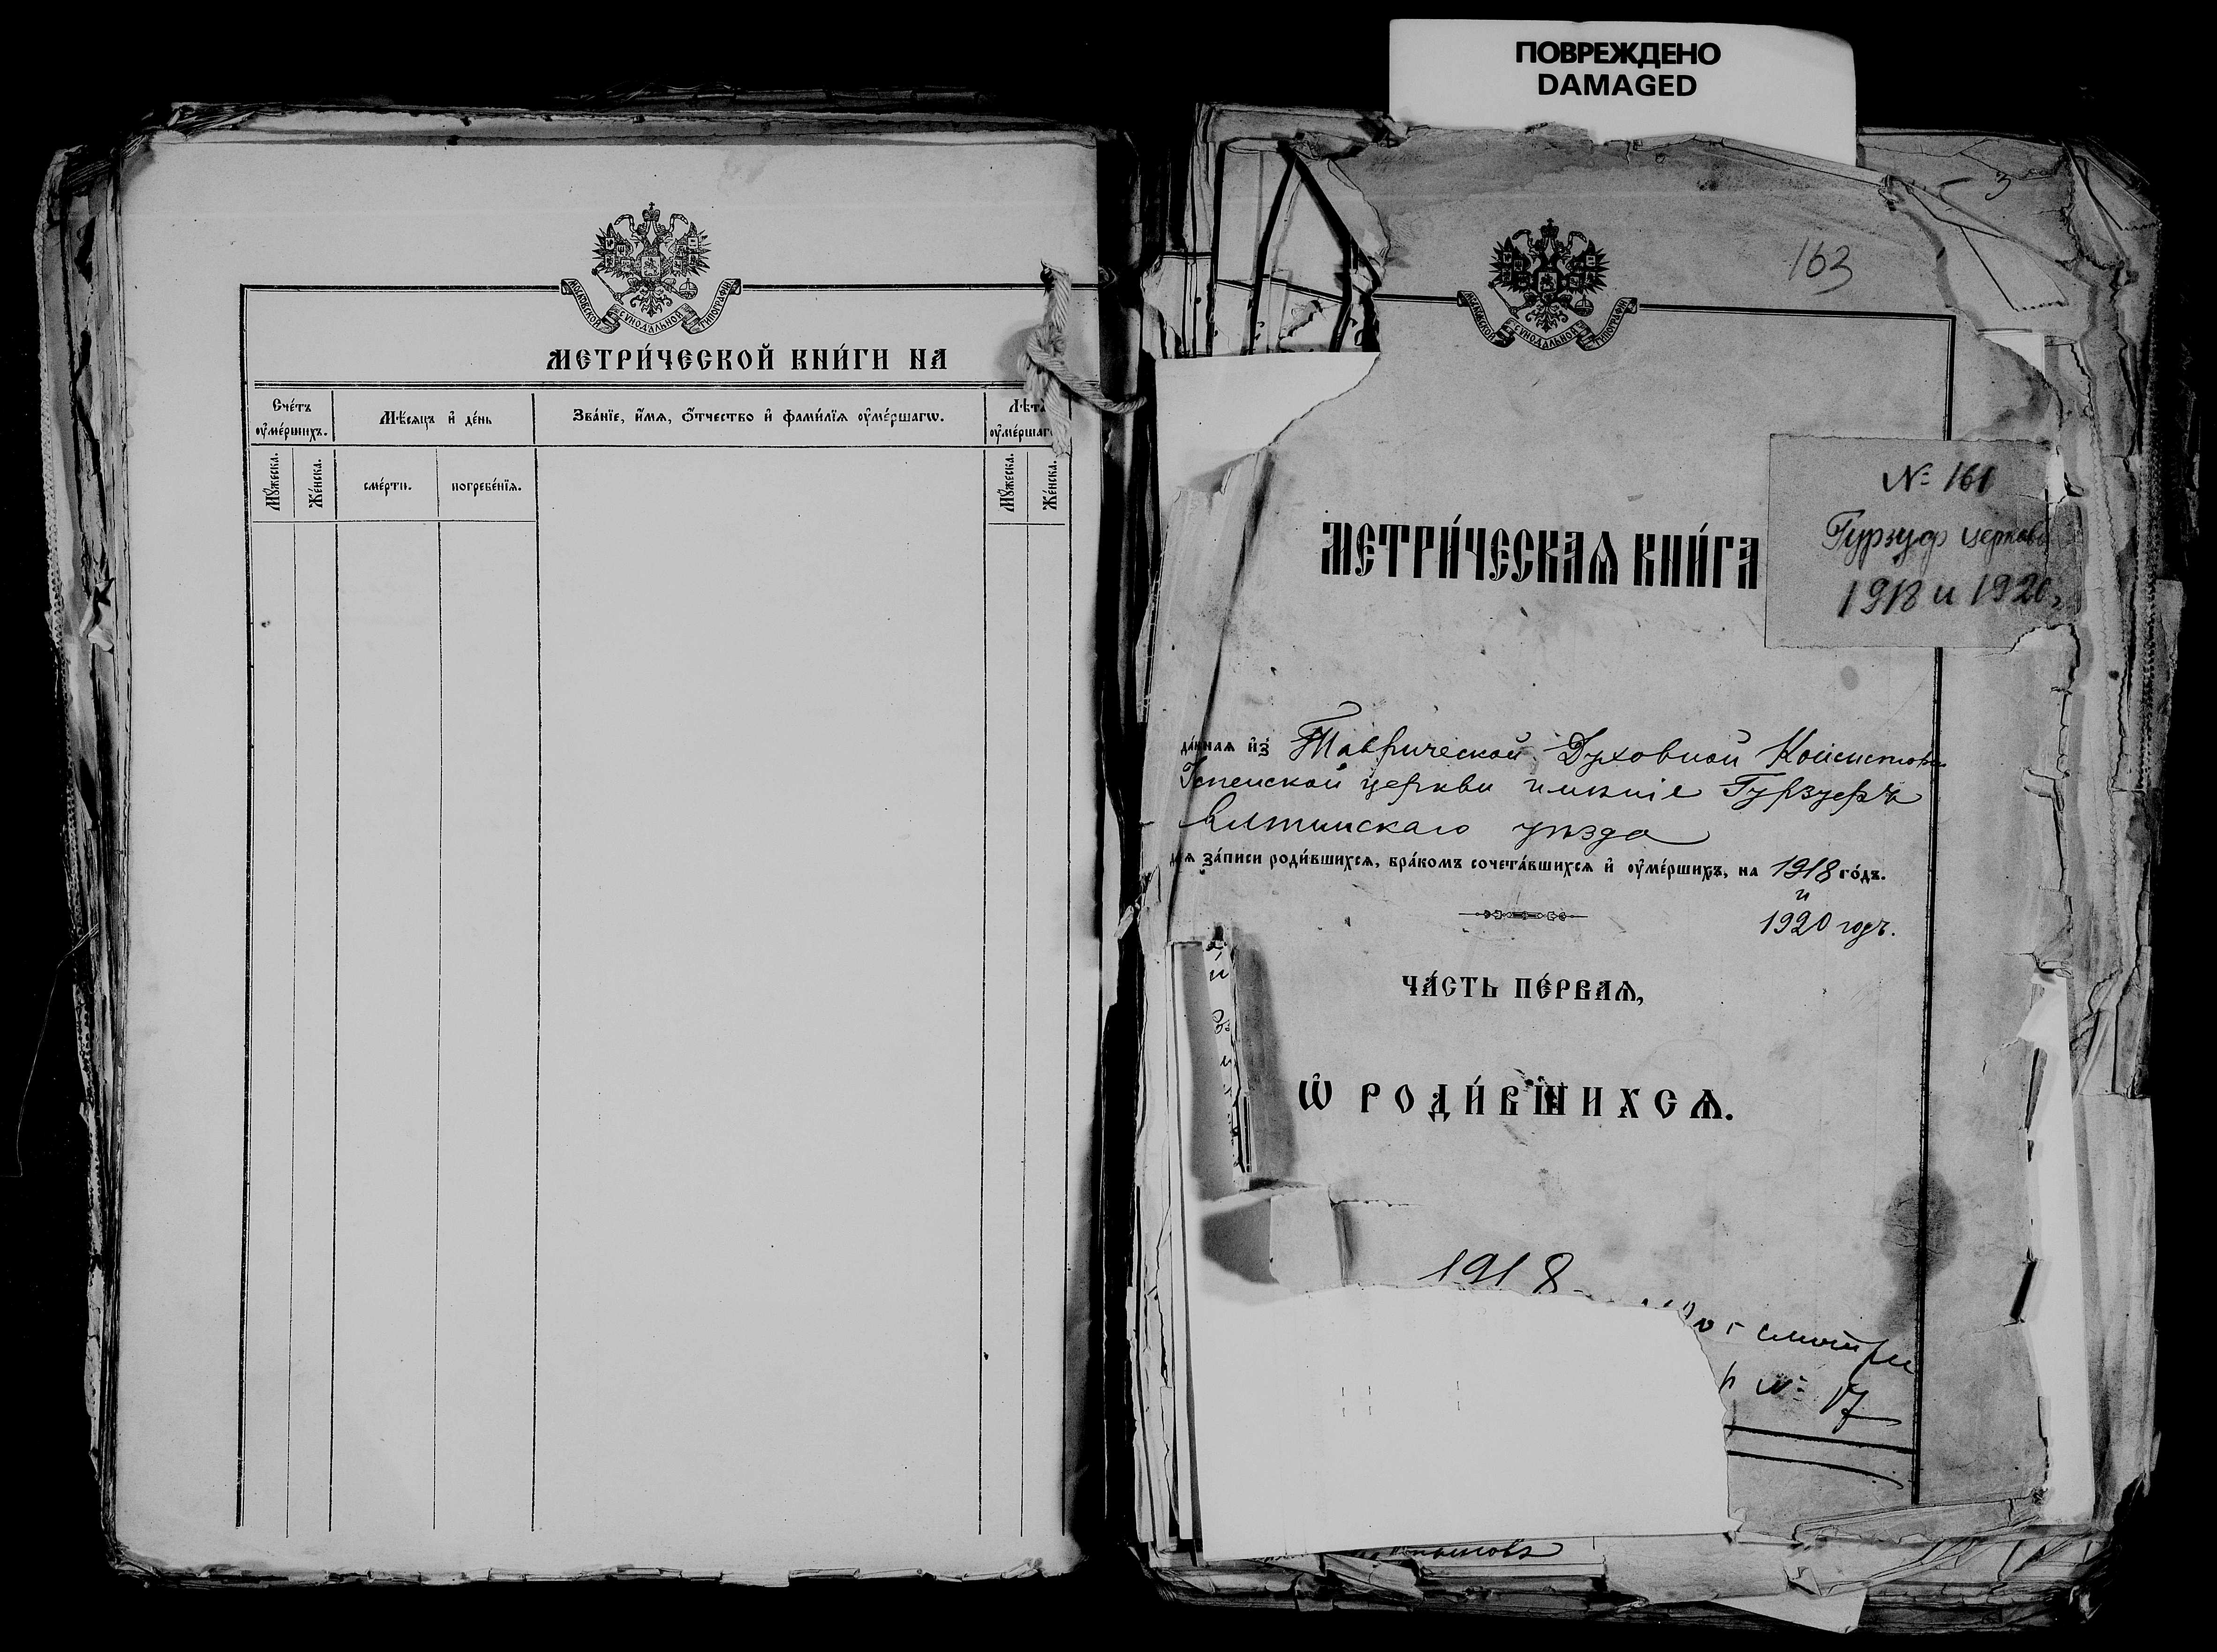 ПОВРЕЖДЕНО
DAMAGED
МОСКОВСКОЙ СѴНОДАЛЬНОЙ ТИПОГРАФІИ
МЕТРИ́ЧЕСКОЙ КНИ́ГИ НА
Сче́тъ оу҆ме́ршихъ.
Мѣ́сяцъ и҆ де́нь
Зва́нїе, и҆́мѧ, ѻ҆́тчество и҆ фами́лїѧ оу҆ме́ршагѡ.
Лѣта̀ оу҆ме́ршаг
Мꙋ́жеска.
Же́нска.
сме́рти.
погребе́нїѧ.
Мꙋ́жеска.
Же́нска.
3
163
МОСКОВСКОЙ СѴНОДАЛЬНОЙ ТИПОГРАФІИ
№ 161
Гурзуф церковь
1918 и 1920,
МЕТРИ́ЧЕСКАѦ КНИ́ГА
да́ннаѧ и҆з̾ Таврической Духовной Консисто
Успенской церкви имѣніе Гурзуфъ
Ялтинскаго уѣзда
для за́писи роди́вшихсѧ, бра́комъ сочета́вшихсѧ и҆ оу҆ме́ршихъ, на 1918 го́дъ.
и
1920 годъ.
ЧА́СТЬ ПЕ́РВАѦ,
Ѡ҆ РОДИ́ВШИХСѦ.
1918
смотри
№ 17